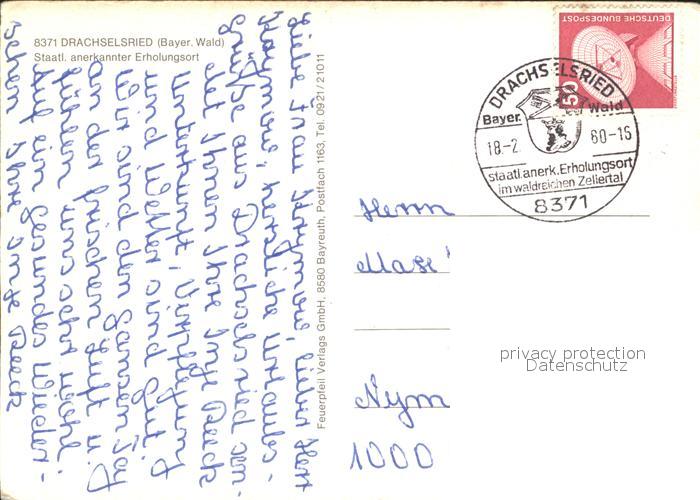 8371 DRACHSELSRIED (Bayer. Wald)
Staatl. anerkannter Erholungsort
Liebe Frau Anymow, lieber Herr
Anymow, herzliche Urlaubs-
grüße aus Drachselsried sen-
det Ihnen Ihre Inge Reeck
Unterkunft, Verpflegung
und Wetter sind gut.
Wir sind den ganzen Tag
an der frischen Luft u.
fühlen uns sehr wohl.
Auf ein gesundes Wieder-
sehen Ihre Inge Reeck
Feuerpfeil Verlags GmbH, 8580 Bayreuth, Postfach 1163, Tel. 0921 / 21011
DEUTSCHE BUNDESPOST
50
DRACHSELSRIED
Bayer. Wald
18.-2. 80-15
staatl. anerk. Erholungsort
im waldreichen Zellertal
8371
Herrn
privacy protection
Datenschutz
1000